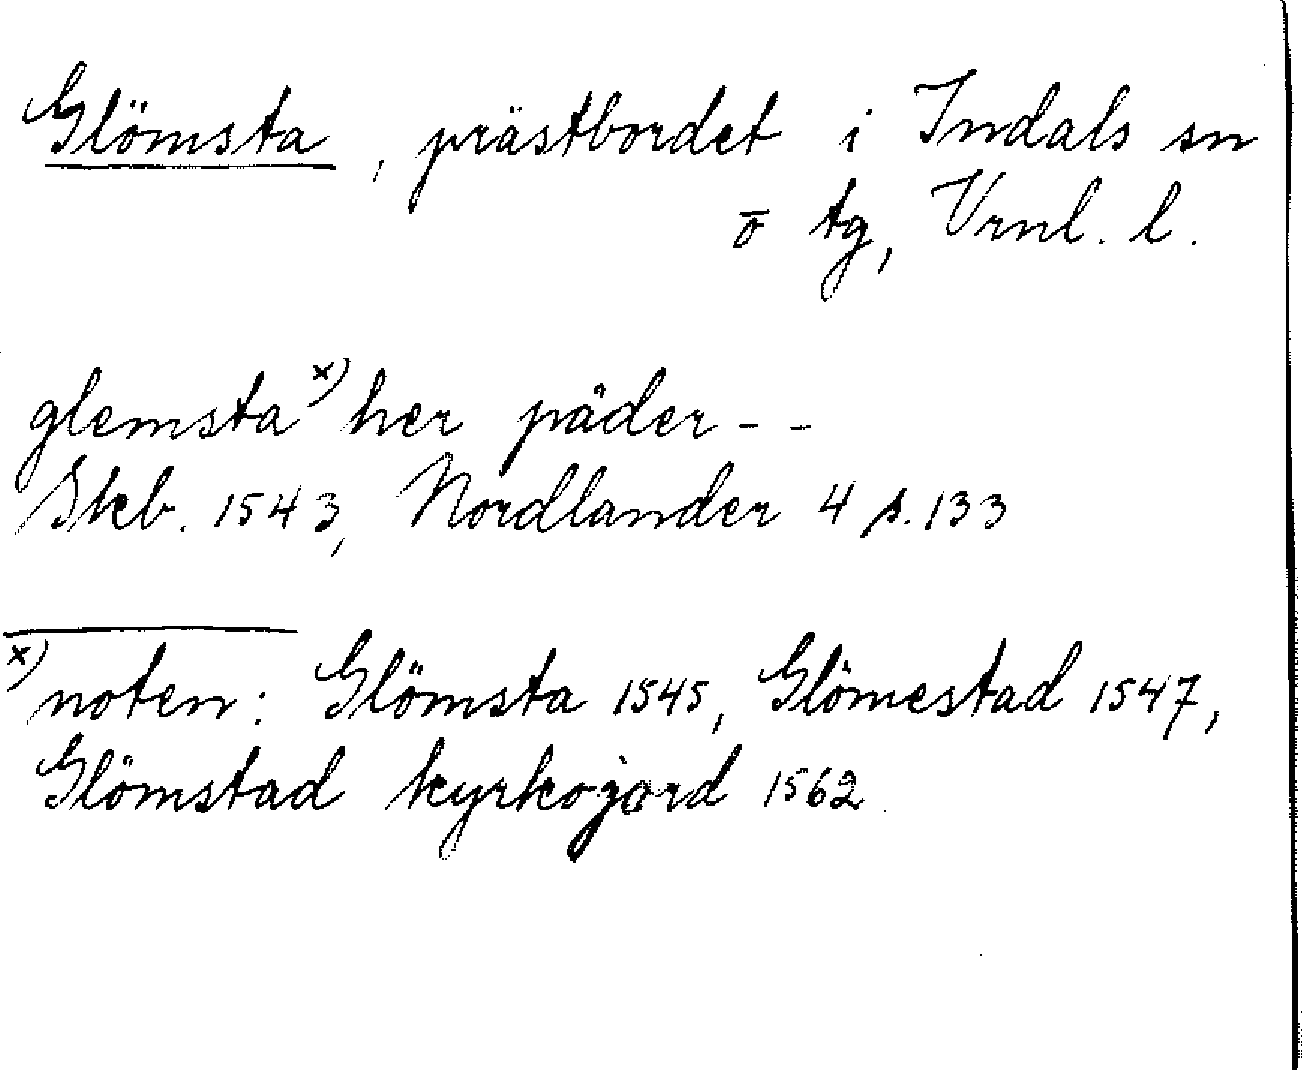 Glömsta, prästbordet i Indals sn
o̅ tg, Vrnl. l.
glemsta x) her päder - -
Skb. 1543, Nordlander 4 s. 133
x) noten: Glömsta 1545, Glömestad 1547,
Glömstad kyrkojord 1562.